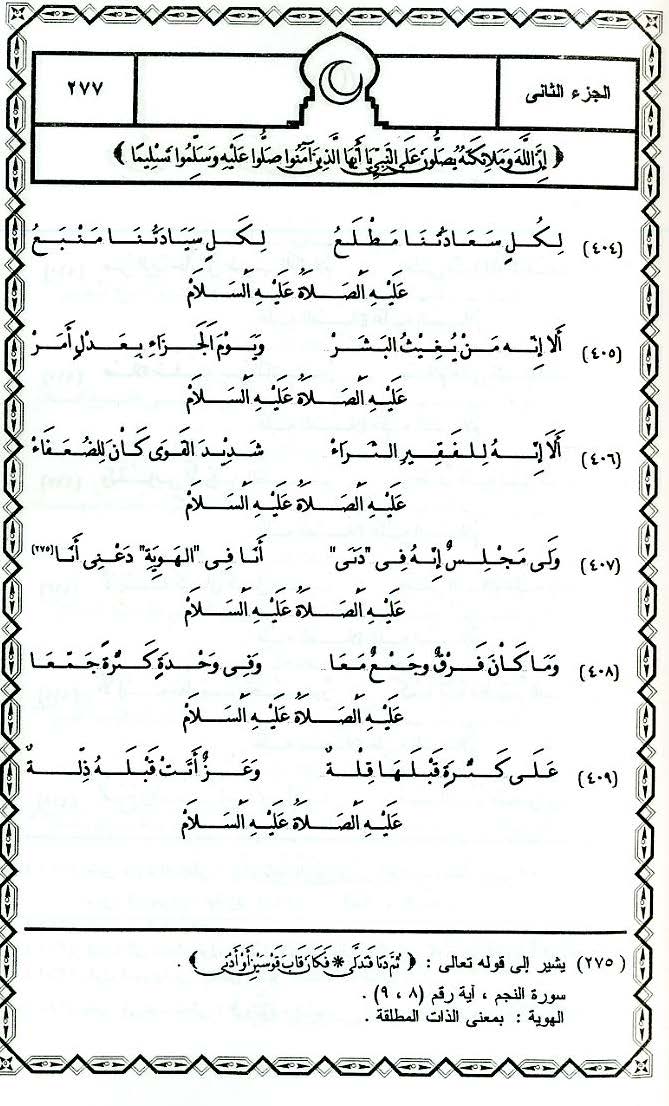 الجزء الثانى
٢٧٧
﴿ إِنَّ اللَّهَ وَمَلَائِكَتَهُ يُصَلُّونَ عَلَى النَّبِيِّ يَا أَيُّهَا الَّذِينَ آمَنُوا صَلُّوا عَلَيْهِ وَسَلِّمُوا تَسْلِيمًا ﴾
(٤٠٤) لِكُلِّ سَعَادَتُنَا مَطْلَعُ لِكُلِّ سَيَادَتُنَا مَنْبَعُ
عَلَيْهِ الصَّلَاةُ عَلَيْهِ السَّلَامْ
(٤٠٥) أَلَا إِنَّه مَنْ يُغِيْثُ البَشَرْ وَيَوْمَ الجَزَاءِ بِعَدْلٍ أَمَرْ
عَلَيْهِ الصَّلَاةُ عَلَيْهِ السَّلَامْ
(٤٠٦) أَلَا إِنَّهُ لِلفَقِيرِ الثَّرَاءْ شَدِيْدَ القَوَى كَانَ لِلضُعَفَاءْ
عَلَيْهِ الصَّلَاةُ عَلَيْهِ السَّلَامْ
(٤٠٧) وَلَى مَجْلِسٌ إِنَّهُ فِى "دَنَى" أَنَا فِى "الهَوِيَّةِ" دَعْنِى أَنَا (٢٧٥)
عَلَيْهِ الصَّلَاةُ عَلَيْهِ السَّلَامْ
(٤٠٨) وَمَا كَانَ فَرْقٌ وَجَمْعٌ مَعَا وَفِى وَحْدَةٍ كَثْرَةً جَمَّعَا
عَلَيْهِ الصَّلَاةُ عَلَيْهِ السَّلَامْ
(٤٠٩) عَلَى كَثْرَةٍ قَبْلَهَا قِلَّةٌ وَعَزٌّ أَتَتْ قَبْلَهُ ذِلَّةٌ
عَلَيْهِ الصَّلَاةُ عَلَيْهِ السَّلَامْ
(٢٧٥) يشير إلى قوله تعالى : ﴿ ثُمَّ دَنَا فَتَدَلَّى * فَكَانَ قَابَ قَوْسَيْنِ أَوْ أَدْنَى ﴾ .
سورة النجم ، آية رقم (٨ ، ٩) .
الهوية : بمعنى الذات المطلقة .